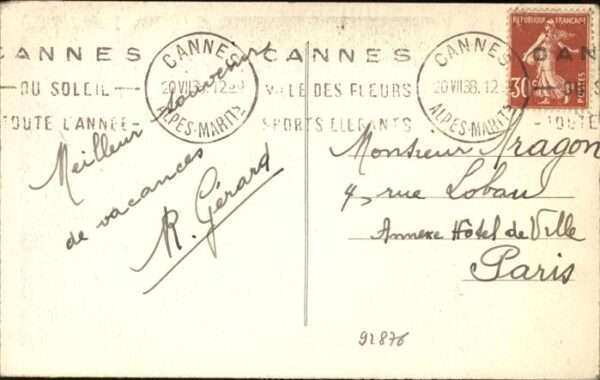 CANNES
DU SOLEIL
TOUTE L'ANNÉE
CANNES
20 VII 38. 12
ALPES-MARITMES
CANNES
VILLE DES FLEURS
SPORTS ELEGANTS
CANNES
20 VII 38. 12
ALPES-MARITMES
CAN
TOUTE
REPUBLIQUE FRANÇAISE
30c
POSTES
Meilleur souvenir
de vacances
R. Gérard
Monsieur Aragon
4, rue Lobau
Annexe Hôtel de Ville
Paris
92876